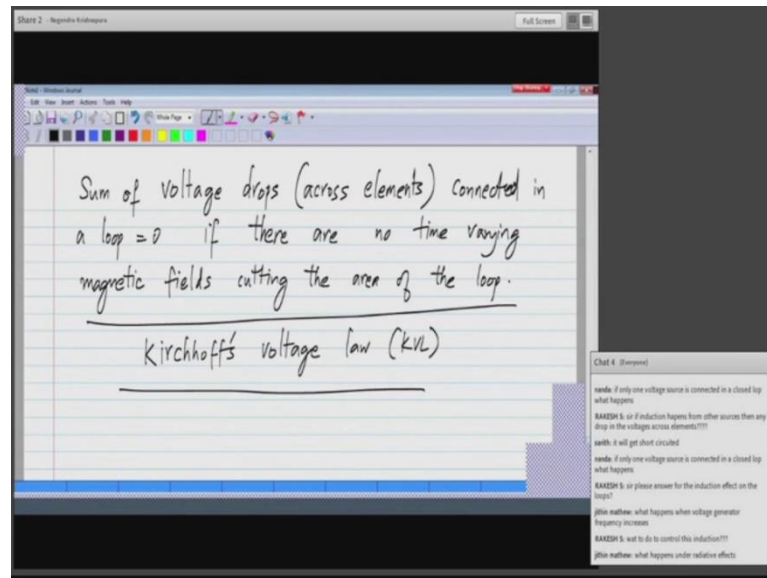 Share 2 - Nagendra Krishnapura
Full Screen
Note1 - Windows Journal
Edit View Insert Actions Tools Help
Whole Page
Sum of voltage drops (across elements) connected in
a loop = 0 if there are no time varying
magnetic fields cutting the area of the loop.
Kirchhoff's voltage law (KVL)
Chat 4 (Everyone)
nanda: if only one voltage source is connected in a closed lop
what happens
RAKESH S: sir if induction hapens from other sources then any
drop in the voltages across elements!!!!!
sarith: it will get short circuited
nanda: if only one voltage source is connected in a closed lop
what happens
RAKESH S: sir please answer for the induction effect on the
loops?
jithin mathew: what happens when voltage generator
frequency increases
RAKESH S: wat to do to control this induction???
jithin mathew: what happens under radiative effects